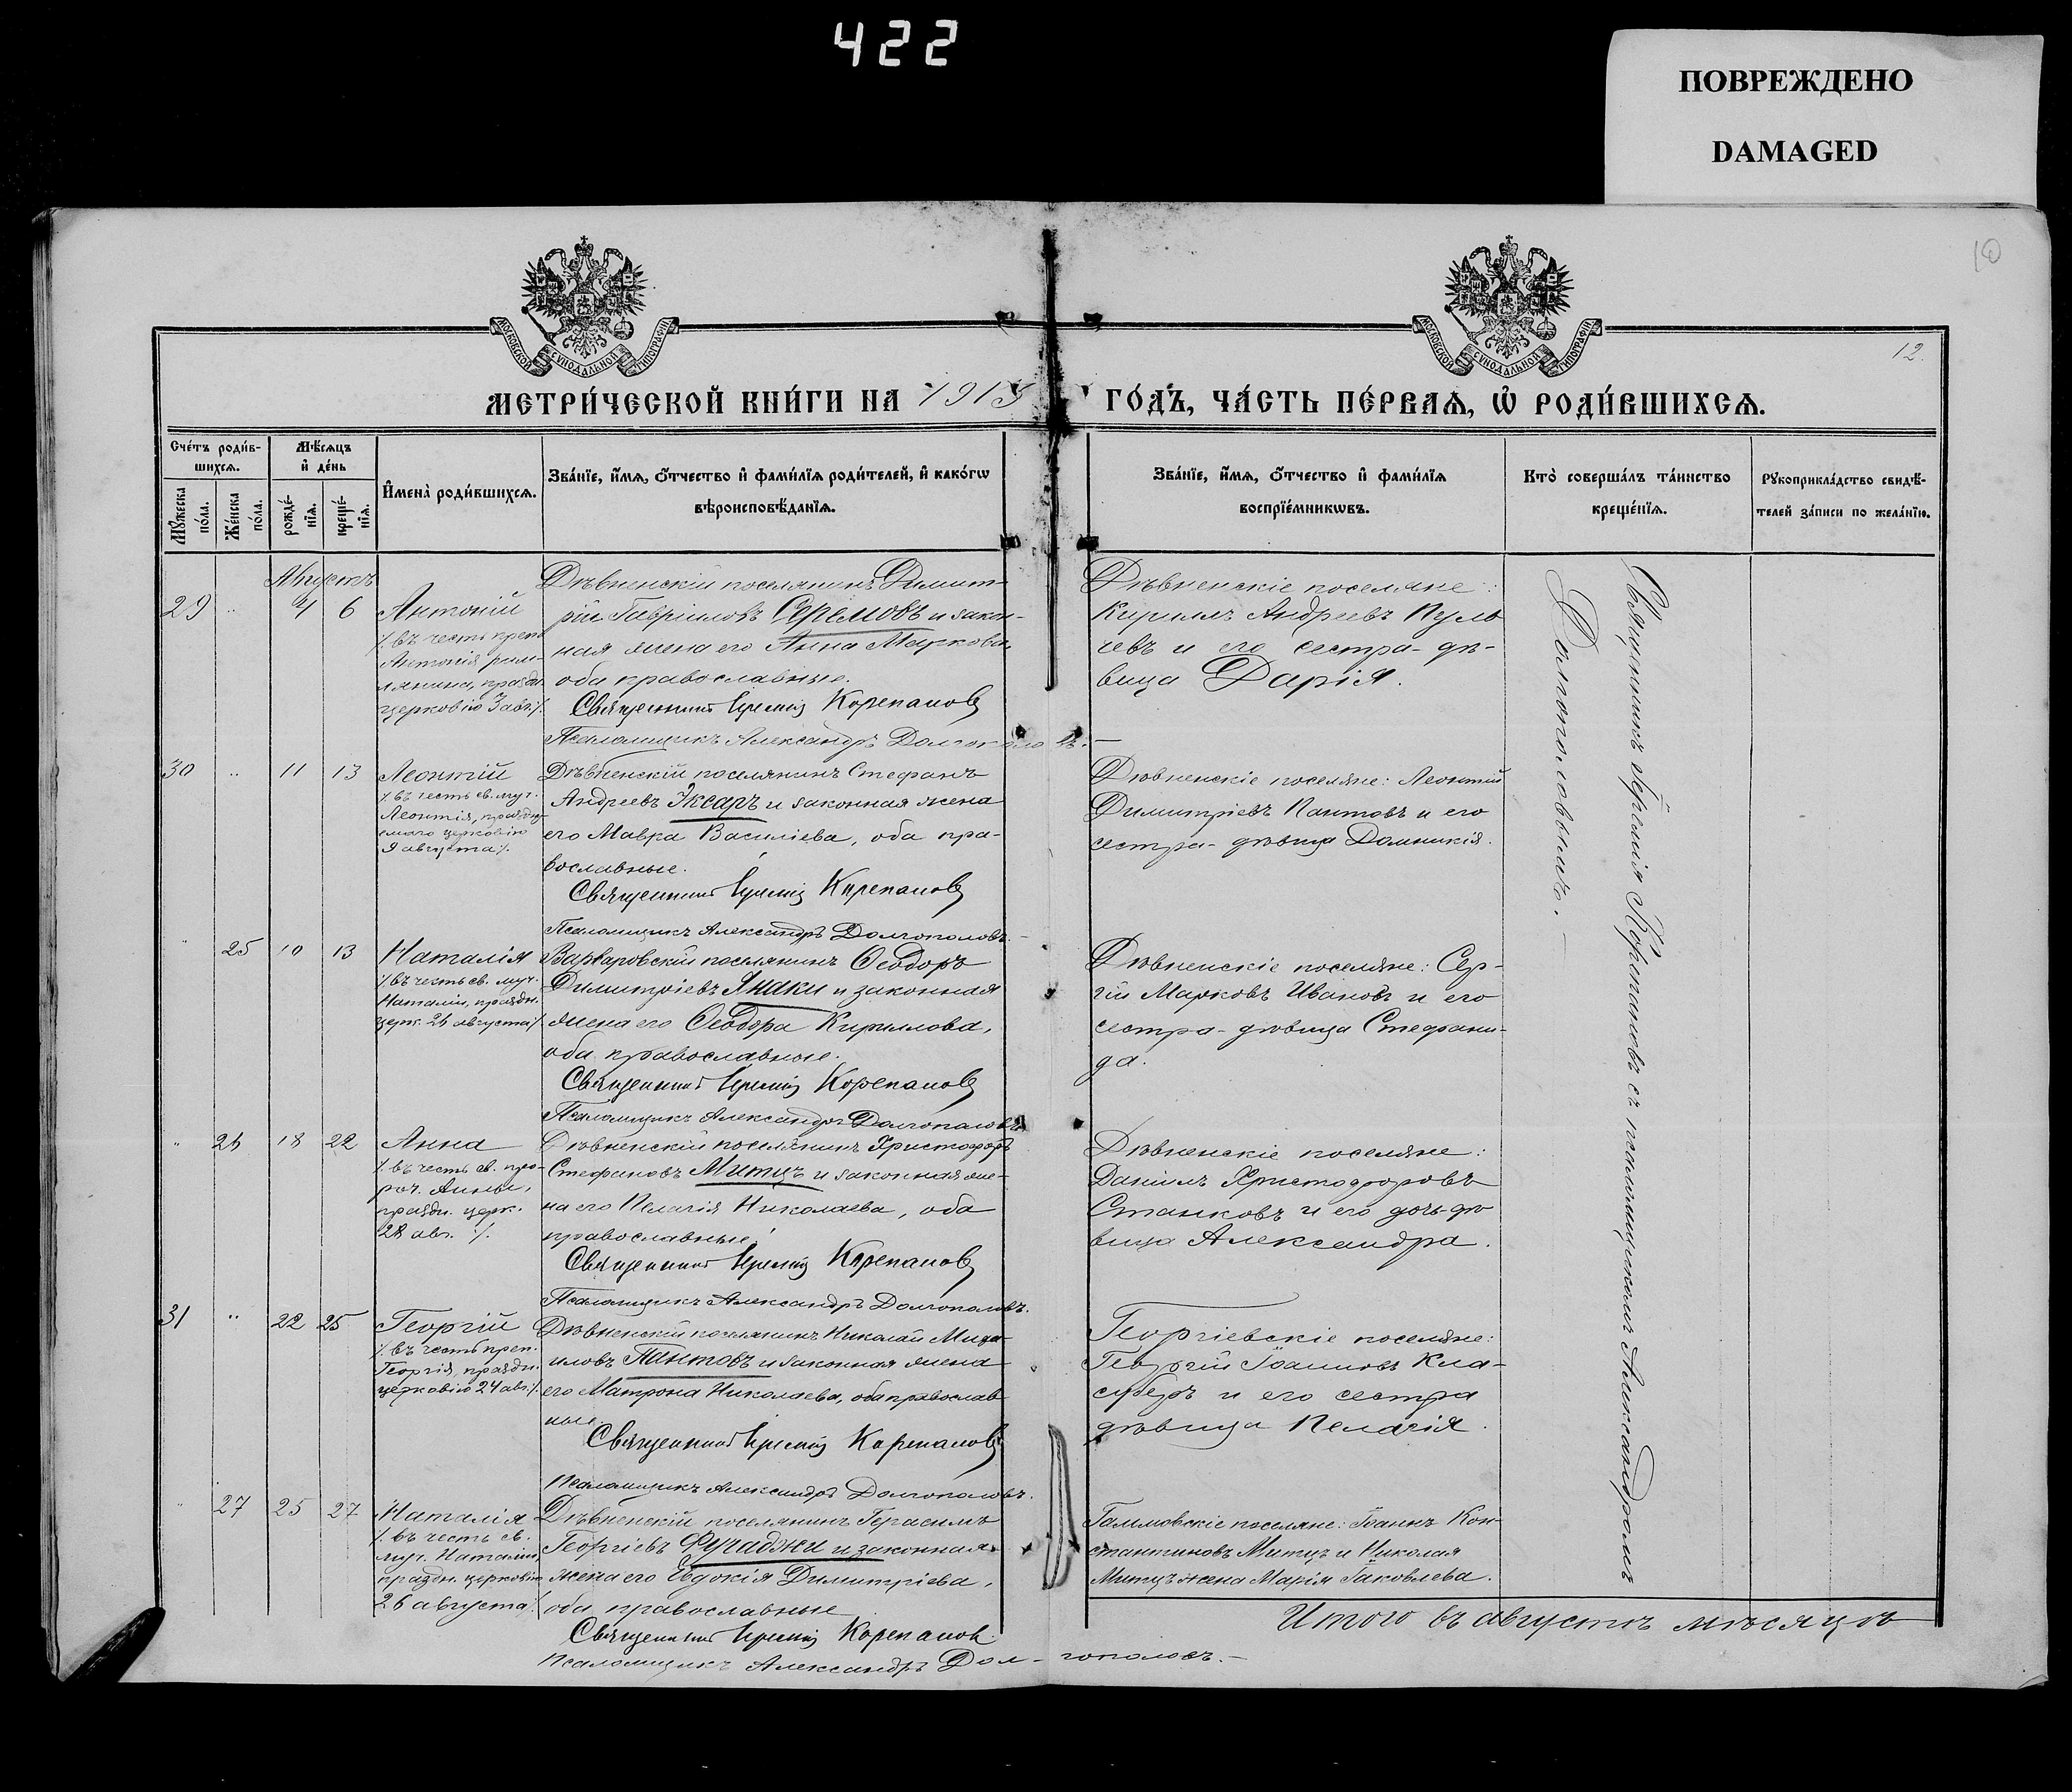 422
ПОВРЕЖДЕНО
DAMAGED
10
12.
МОСКОВСКОЙ СУНОДАЛЬНОЙ ТИПОГРАФІИ
МОСКОВСКОЙ СУНОДАЛЬНОЙ ТИПОГРАФІИ
МЕТРИ́ЧЕСКОЙ КНИ́ГИ НА 1913 ГО́ДЪ, ЧА́СТЬ ПЕ́РВАѦ, Ѡ҆ РОДИ́ВШИХСѦ.
Сче́тъ роди́в-
шихсѧ.
Мꙋ́жеска
по́ла.
Же́нска
по́ла.
Мѣ́сѧцъ
и҆ де́нь
рожде́-
нїѧ.
креще́-
нїѧ.
И҆мена̀ роди́вшихсѧ.
Зва́нїе, и҆́мѧ, ѻ҆́тчество и҆ фами́лїѧ роди́телей, и҆ како́гѡ
вѣроисповѣ́данїѧ.
Зва́нїе, и҆́мѧ, ѻ҆́тчество и҆ фами́лїѧ
воспрїе́мникѡвъ.
Кто̀ соверша́лъ та́инство
креще́нїѧ.
Рꙋкоприкла́дство свидѣ́-
телей за́писи по жела́нїю.
Августъ
29 " 4 6 Антоній
/. въ честь преп.
Антонія рим-
лянина, праздн.
церковію 3 авг. /.
Дѣвненскій поселянинъ Димит-
рій Гавріиловъ Сереmовъ и закон-
ная жена его Анна Маркова,
оба православные.
Священникъ Іеремія Корепановъ
Псаломщикъ Александръ Долгополовъ.
Дѣвненскіе поселяне:
Кириллъ Андреевъ Пуль
чевъ и его сестра-дѣ-
вица Дарія.
30 " 11 13 Леонтій
/. въ честь св. муч.
Леонтія, праздну-
емаго церковію
9 августа /.
Дѣвненскій поселянинъ Стефанъ
Андреевъ Эксаръ и законная жена
его Мавра Василіева, оба пра-
вославные.
Священникъ Іеремія Корепановъ
Псаломщикъ Александръ Долгополовъ.
Дѣвненскіе поселяне: Леонтій
Димитріевъ Пантовъ и его
сестра-дѣвица Домникія.
" 25 10 13 Наталія
/. въ честь св. муч.
Наталіи, праздн.
церк. 26 августа /.
Варваровскій поселянинъ Ѳеодоръ
Димитріевъ Янаки и законная
жена его Ѳеодора Кирилова,
оба православные.
Священникъ Іеремія Корепановъ
Псаломщикъ Александръ Долгополовъ
Дѣвненскіе поселяне: Сер-
гій Марковъ Ивановъ и его
сестра-дѣвица Стефани-
да.
" 26 18 22 Анна
/. въ честь св. про-
роч. Анны,
праздн. церк.
28 авг. /.
Дѣвненскій поселянинъ Христофоръ
Стефановъ Митцъ и законная же-
на его Пелагія Николаева, оба
православные.
Священникъ Іеремія Корепановъ
Псаломщикъ Александръ Долгополовъ.
Дѣвненскіе поселяне:
Даніилъ Христофоровъ
Станковъ и его дочь-дѣ
вица Александра.
31 " 22 25 Георгій
/. въ честь преп.
Георгія, праздн.
церковію 24 авг. /.
Дѣвненскій поселянинъ Николай Миха-
иловъ Пантовъ и законная жена
его Матрона Николаева, оба православ
ные
Священникъ Іеремія Корепановъ
Псаломщикъ Александръ Долгополовъ.
Георгіевскіе поселяне:
Георгій Іоанновъ
и его сестра
дѣвица Пелагія.
" 27 25 27 Наталія
/. въ честь св.
муч. Наталіи,
праздн. церковію
26 августа /.
Дѣвненскій поселянинъ Герасимъ
Георгіевъ Фучаджи и законная
жена его Евдокія Димитріева,
оба православные
Священникъ Іеремія Корепановъ
Псаломщикъ Александръ Дол-гополовъ.
поселяне: Іоаннъ Кон-
стантиновъ Митцъ и Николая
Митцъ жена Марія Іаковлева.
Священникъ Іеремія Корепановъ съ псаломщикомъ Александромъ
Долгополовымъ.
Итого въ августѣ мѣсяцѣ